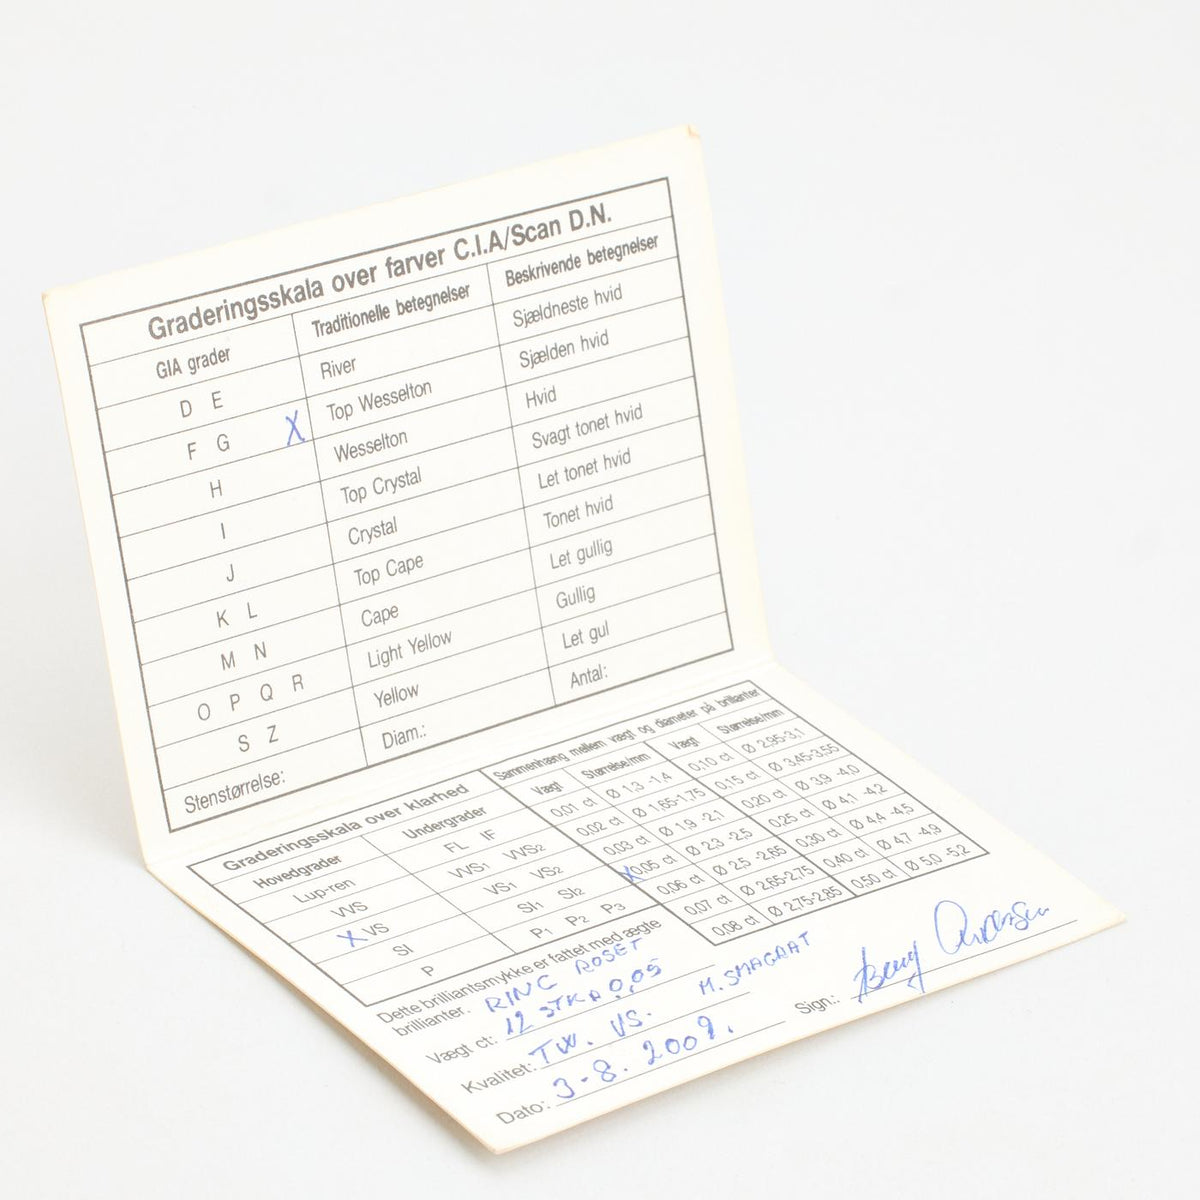 Graderingsskala over farver C.I.A/Scan D.N.
GIA grader Traditionelle betegnelser Beskrivende betegnelser
D E River Sjældneste hvid
F G X Top Wesselton Sjælden hvid
H Wesselton Hvid
I Top Crystal Svagt tonet hvid
J Crystal Let tonet hvid
K L Top Cape Tonet hvid
M N Cape Let gullig
O P Q R Light Yellow Gullig
S Z Yellow Let gul
Stenstørrelse: Diam.: Antal:
Graderingsskala over klarhed
Hovedgrader Undergrader
Lup-ren FL IF
VVS VVS1 VVS2
X VS VS1 VS2
SI SI1 SI2
P P1 P2 P3
Sammenhæng mellem vægt og diameter på brillianter
Vægt Størrelse/mm Vægt Størrelse/mm
0,01 ct Ø 1,3 -1,4 0,10 ct Ø 2,95-3,1
0,02 ct Ø 1,65-1,75 0,15 ct Ø 3,45-3,55
0,03 ct Ø 1,9 -2,1 0,20 ct Ø 3,9 -4,0
X 0,05 ct Ø 2,3 -2,5 0,25 ct Ø 4,1 -4,2
0,06 ct Ø 2,5 -2,65 0,30 ct Ø 4,4 -4,5
0,07 ct Ø 2,65-2,75 0,40 ct Ø 4,7 -4,9
0,08 ct Ø 2,75-2,85 0,50 ct Ø 5,0 -5,2
Dette brilliantsmykke er fattet med ægte
brillianter. RING ROSET
Vægt ct: 12 STK A 0,05 M. SMAGRAT
Kvalitet: TW. VS.
Dato: 3-8. 2009. Sign.: Andersen